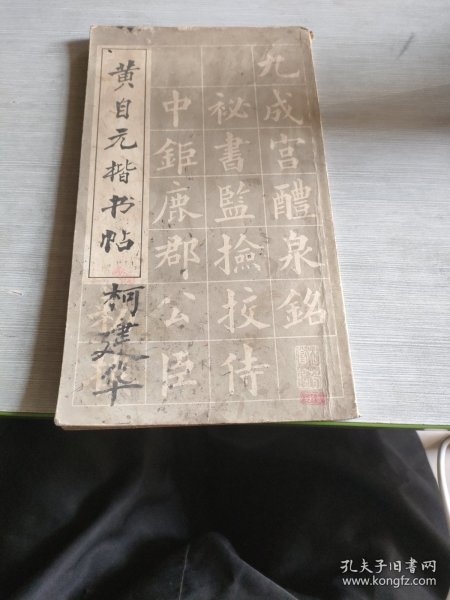 九成宫醴泉銘
祕書監撿挍侍
中鉅鹿郡公臣
黄自元楷书帖
柯建华
孔夫子旧书网
www.kongfz.com